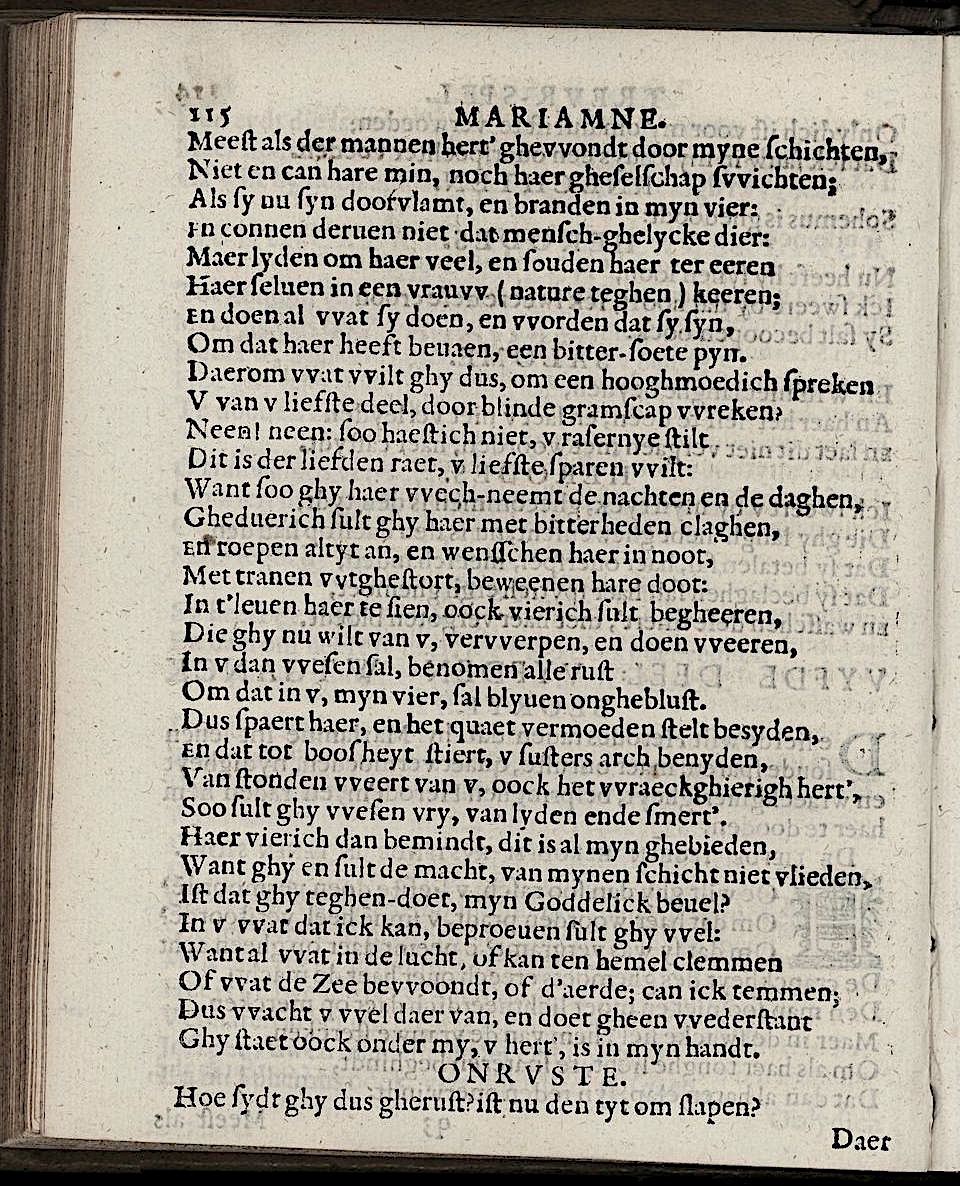 115 MARIAMNE.
Meeſt als der mannen hert' ghevvondt door myne ſchichten,
Niet en can hare min, noch haer gheſelſchap ſvvichten;
Als ſy nu ſyn doorvlamt, en branden in myn vier:
En connen deruen niet dat menſch-ghelycke dier:
Maer lyden om haer veel, en ſouden haer ter eeren
Haer ſeluen in een vrauvv (nature teghen) keeren;
En doen al vvat ſy doen, en vvorden dat ſy ſyn,
Om dat haer heeft beuaen, een bitter-ſoete pyn.
Daerom vvat vvilt ghy dus, om een hooghmoedich ſpreken
V van v liefſte deel, door blinde gramſcap vvreken?
Neen! neen: ſoo haeſtich niet, v raſernye ſtilt
Dit is der liefden raet, v liefſte ſparen vvilt:
Want ſoo ghy haer vvech-neemt de nachten en de daghen,
Gheduerich ſult ghy haer met bitterheden claghen,
En roepen altyt an, en wenſſchen haer in noot,
Met tranen vvtgheſtort, beweenen hare doot:
In t'leuen haer te ſien, oock vierich ſult begheeren,
Die ghy nu wilt van v, vervverpen, en doen vveeren,
In v dan vveſen ſal, benomen alle ruſt
Om dat in v, myn vier, ſal blyuen ongebluſt.
Dus ſpaert haer, en het quaet vermoeden ſtelt beſyden,
En dat tot boosheyt ſtiert, v ſuſters arch benyden,
Van ſtonden vveert van v, oock het vvraeckghierigh hert',
Soo ſult ghy vveſen vry, van lyden ende ſmert'.
Haer vierich dan bemindt, dit is al myn ghebieden,
Want ghy en ſult de macht, van mynen ſchicht niet vlieden,
Iſt dat ghy teghen-doet, myn Goddelick beuel?
In v vvat dat ick kan, beproeuen ſult ghy vvel:
Want al vvat in de lucht, of kan ten hemel clemmen
Of vvat de Zee bevvoondt, of d'aerde; can ick temmen;
Dus vvacht v vvel daer van, en doet gheen vvederſtant
Ghy ſtaet oock onder my, v hert', is in myn handt.
ONRVSTE.
Hoe ſydt ghy dus gheruſt? iſt nu den tyt om ſlapen?
Daer